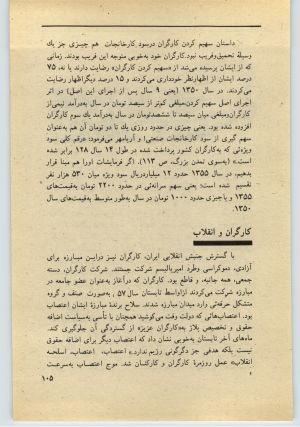 داستان سهیم کردن کارگران درسود کارخانجات هم چیزی جز یك
وسیلهٔ تحمیق‌وفریب نبود. کارگران خود به‌خوبی متوجه این فریب بودند. زمانی
که از ایشان پرسیده می‌شد از «سهیم کردن کارگران» رضایت دارند یا نه، ۷۵
درصد ایشان از اظهارنظر خودداری می‌کردند و ۱۵ درصد دیگراظهار رضایت
می‌کردند. در سال ۱۳۵۰ (یعنی ۹ سال پس از اجرای این اصل) در اثر
اجرای اصل سهیم کردن،مبلغی کمتر از سیصد تومان در سال به‌درآمد نیمی‌از
کارگران‌ومبلغی میان سیصد تا ششصدتومان‌در سال به‌درآمد یك سوم کارگران
افزوده شده بود. یعنی چیزی در حدود روزی یك تا دو تومان آن هم به‌عنوان
سهم گیری از سود کارخانجات صنعتی! و آریامهر می‌فرمود: «رقم کلی سود
ویژه‌ئی که به‌کارگران کشور پرداخت شده در طول ۱۴ سال ۱۲۸ برابر شده
است.» (به‌سوی تمدن بزرگ، ص ۱۱۳). اگر فرمایشات اورا هم مبنا قرار
بدهیم، در سال ۱۳۵۵ حدود ۱۲ میلیاردریال سود ویژه میان ۵۳۰ هزار نفر
تقسیم شده است؛ یعنی سهم سرانه‌ئی در حدود ۲۲۰۰ تومان به‌قیمت‌های
۱۳۵۵ و یا چیزی حدود ۱۰۰۰ تومان در سال به‌طور متوسط به‌قیمت‌های سال
۱۳۵۰.
کارگران و انقلاب
با گسترش جنبش انقلابی ایران، کارگران نیز دراین مبارزه برای
آزادی، دموکراسی وطرد امپریالیسم شرکت جستند. شرکت کارگران، دسته
جمعی، همه جانبه، و قاطع بود. کارگران که درآغازبه‌عنوان عضو جامعه در
مبارزه شرکت می‌کردند ازاواسط تابستان سال ۵۷، به‌صورت صنف و گروه
متشکل حرفه‌ئی وارد میدان مبارزه شدند. سلاح برندهٔ مبارزهٔ ایشان اعتصاب
بود. اعتصاب‌هائی که دولت وقت می‌کوشید همچنان با تأسی به‌سیاست اضافه
حقوق و تخصیص پلاژ به‌کارگران عزیز!» از گستردگی آن جلوگیری کند.
ماه‌های آخر تابستان به‌خوبی نشان داد که اعتصاب دیگر برای اضافه حقوق
نیست بلکه هدفی جز دگرگونی رژیم ندارد.» اعتصاب، اعتصاب، اسلحه
انقلاب» عمل روزمرهٔ کارگران و کارکنان شد. موج اعتصاب به‌سرعت
۱۰۵